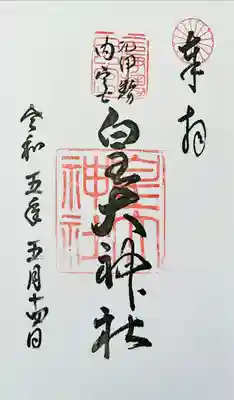 奉拝
元伊勢
内宮
皇大神社
皇大
神社
令和五年五月十四日